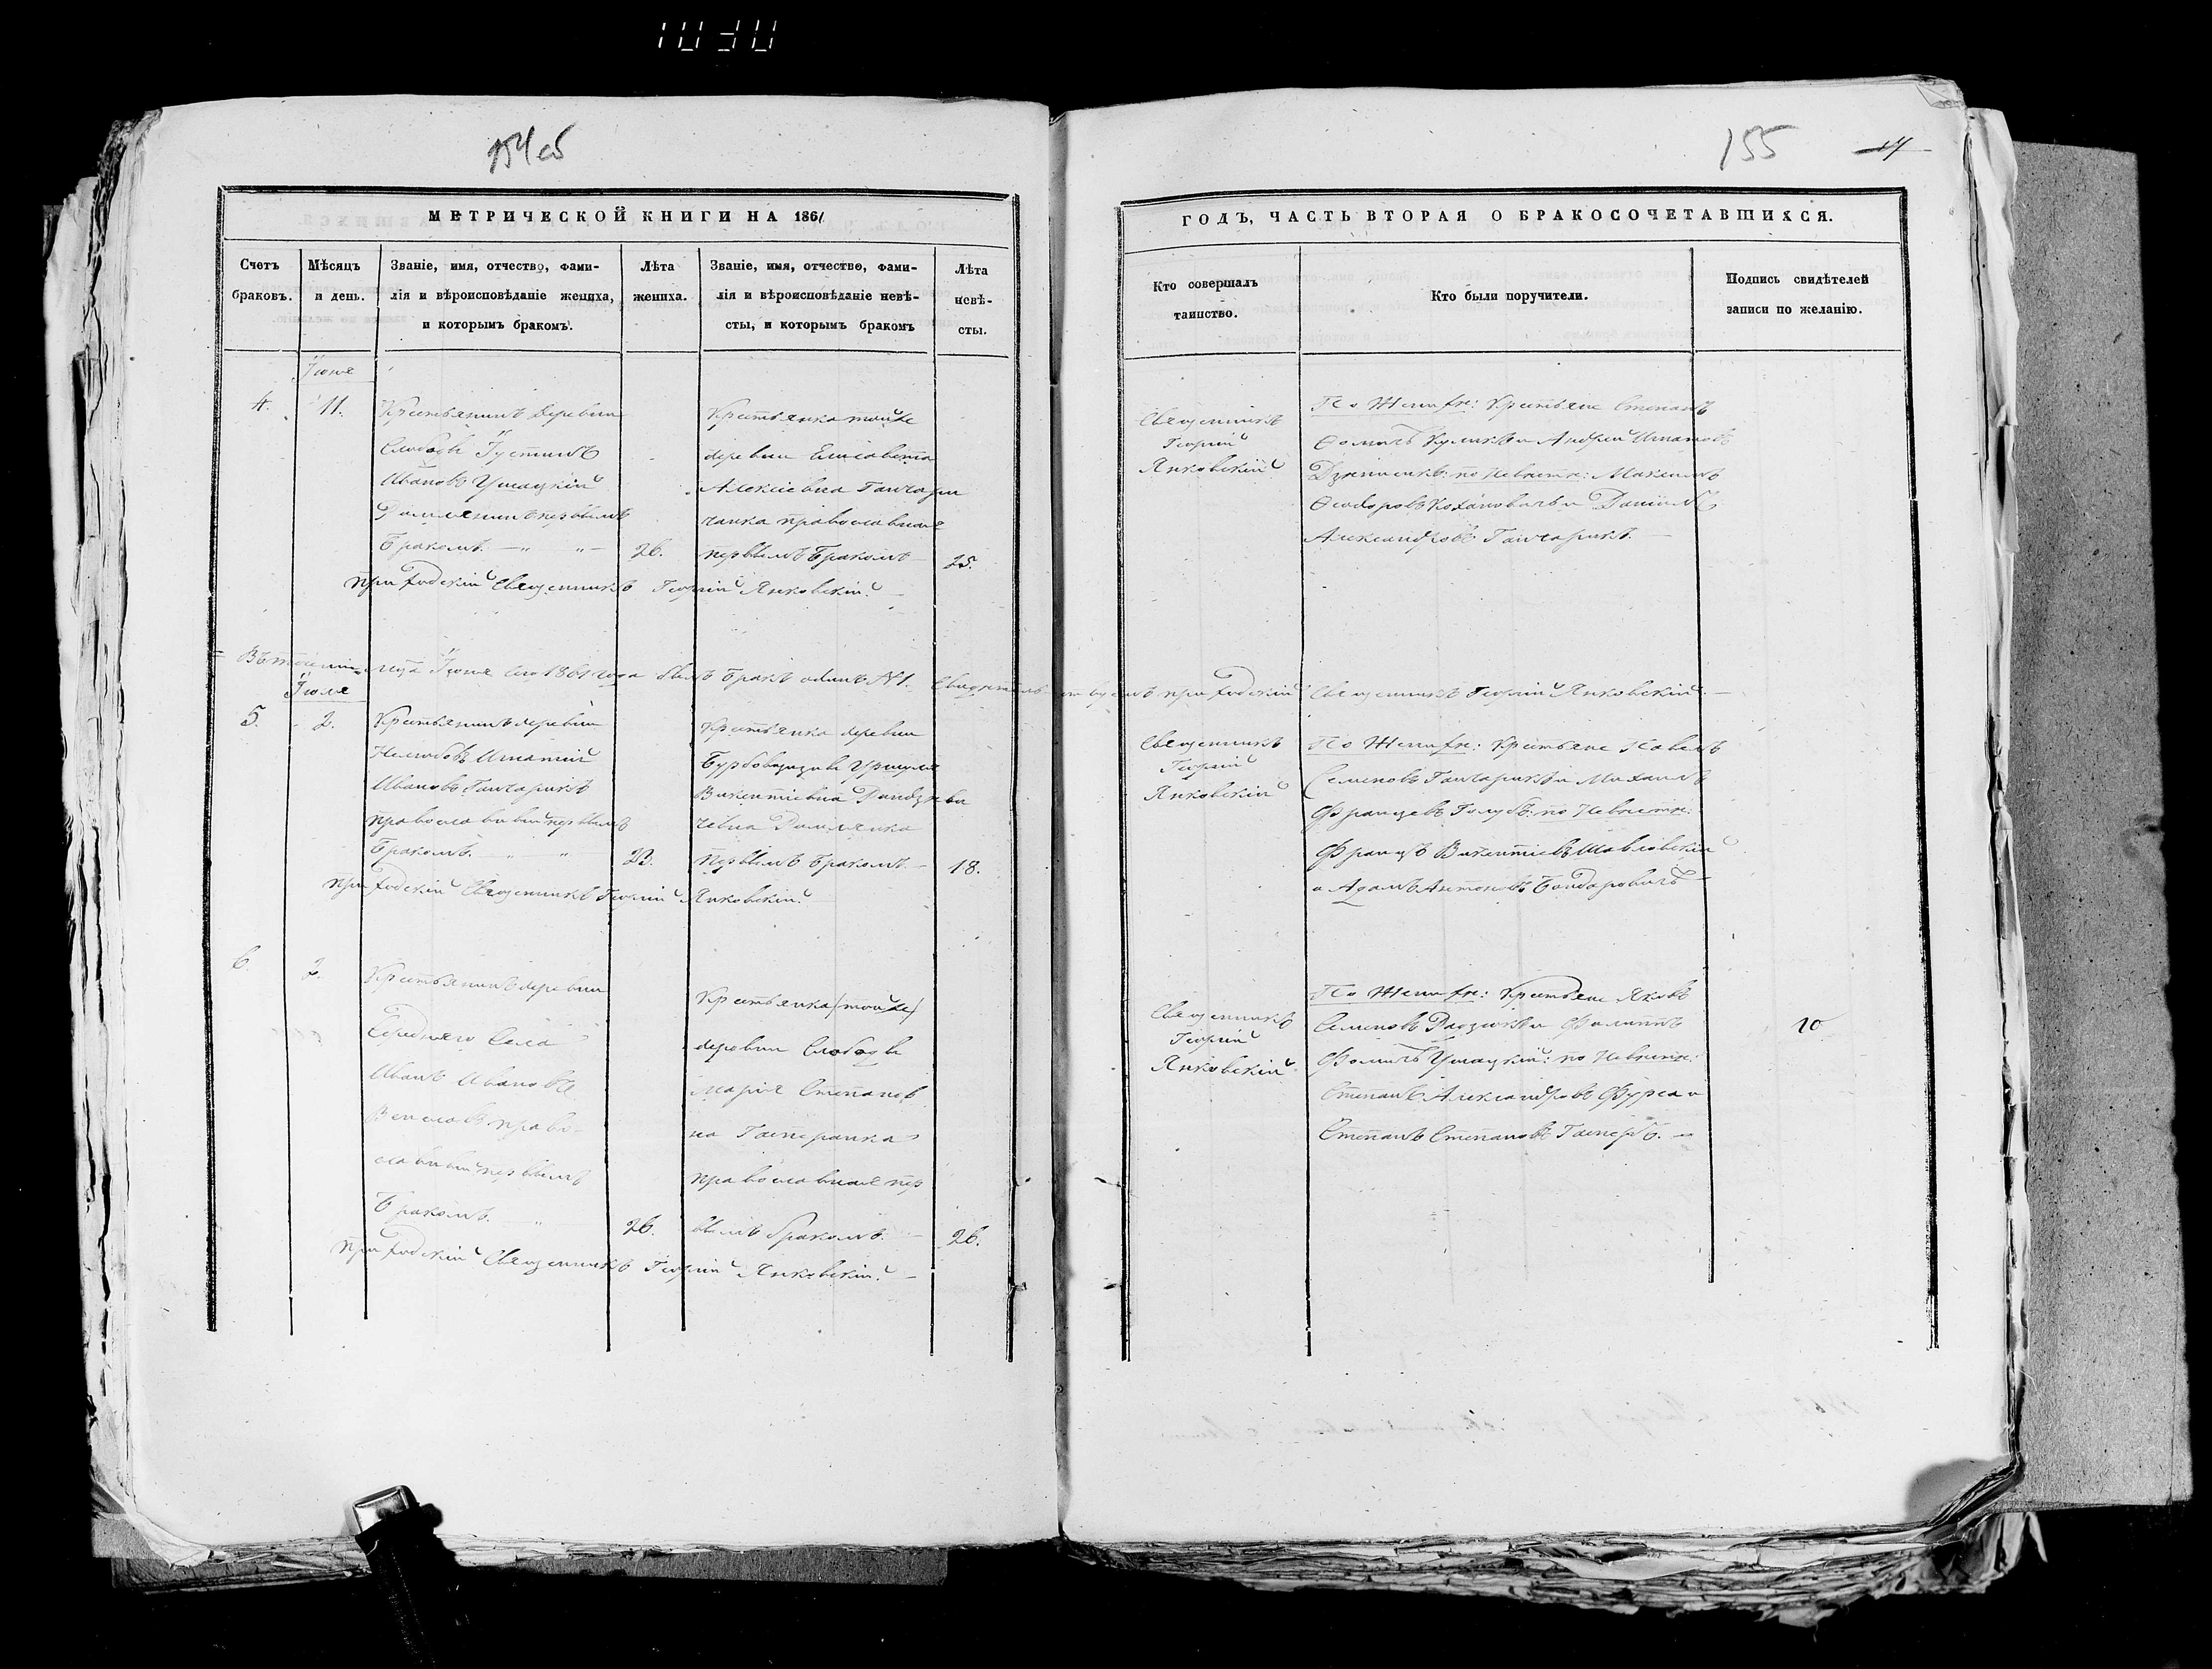 1030
154 об
МЕТРИЧЕСКОЙ КНИГИ НА 1861
Счетъ браковъ.
Мѣсяцъ и день.
Званіе, имя, отчество, фами-
лія и вѣроисповѣданіе жениха,
и которымъ бракомъ.
Лѣта жениха.
Званіе, имя, отчество, фами-
лія и вѣроисповѣданіе невѣ-
сты, и которымъ бракомъ
Лѣта невѣ-
сты.
Іюня
4.
11.
Крестьянинъ деревни
Слободы Іустинъ
Ивановъ Ушацкій
Римлянинъ первымъ
бракомъ.
26.
Крестьянка тойже
деревни Елисавета
Алексіевна Ганчари
чанка православная
первымъ бракомъ
25.
Приходскій Священникъ Георгій Янковскій.
Въ теченіи мца Іюня сего 1861 года былъ бракъ одинъ №1.
Іюля
5.
2.
Крестьянинъ деревни
Игнатій
Ивановъ Ганчарикъ
православный первымъ
бракомъ.
23.
Крестьянка деревни
Уршуля
Викентіевна
чевна Римлянка
первымъ бракомъ
18.
Приходскій Священникъ Георгій Янковскій.
6.
2.
Крестьянинъ деревни
Средняго Села
Иванъ Ивановъ
право-
славный первымъ
бракомъ.
26.
Крестьянка (тойже)
деревни Слободы
Марія Степанов
на Гасперанка
православная пер
вымъ бракомъ.
26.
Приходскій Священникъ Георгій Янковскій.
155
14
ГОДЪ, ЧАСТЬ ВТОРАЯ О БРАКОСОЧЕТАВШИХСЯ.
Кто совершалъ
таинство.
Кто были поручители.
Подпись свидѣтелей
записи по желанію.
Священникъ
Георгій
Янковскій
По Женихѣ: Крестьяне Степанъ
Ѳомичъ Куликъ и Андрей Игнатовъ
по Невѣстѣ: Максимъ
Ѳеодоровъ Кохановичъ и Даніилъ
Александровъ Ганчарикъ.
приходскій Священникъ Георгій Янковскій.
Священникъ
Георгій
Янковскій
По Женихѣ: Крестьяне Павелъ
Семеновъ Ганчарикъ и Михаилъ
Францевъ Голубъ: по Невѣстѣ:
Францъ Викентіевъ Шавловскій
и Адамъ Антоновъ Бондаровичъ
Священникъ
Георгій
Янковскій
По Женихѣ: Крестьяне Яковъ
Семеновъ и Филиппъ
Ѳомичъ Ушацкій: по Невѣстѣ:
Степанъ Александровъ Фурса и
Степанъ Степановъ Гасперъ.
10